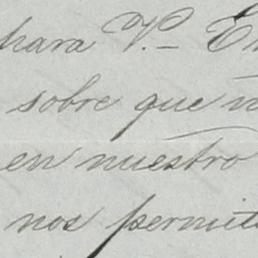 para V. E
sobre que n
en nuestro
nos permit